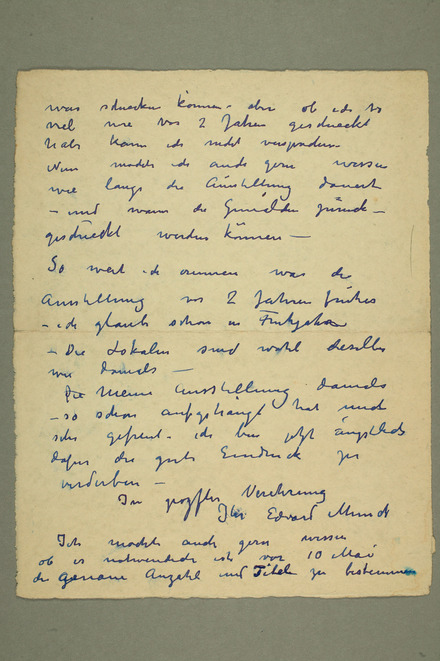 was schicken können. aber ob ich so
viel wie vor 2 Jahren geschickt
habe kann ich nicht
Nun möchte ich auch gern wissen
wie lange die Ausstellung dauert
– und wann die Gemälden zürück–
geschickt werden können –
So weit ich erinnere war die
Ausstellung vor 2 Jahren früher
– ich glaube schon in Frühjahr
– Die Lokalen sind wohl deselbe
wie damals –
Die meine Ausstellung damals
– so schön aufgehängt hat mich
sehr gefreut. ich bin jetzt ängstlich
dafür die gute Eindruck zu
verderben –
In größter Verehrung
Ihr Edvard Munch
Ich möchte auch gern wissen
ob es notwendich ist vor 10 Mai
die genaue Anzahl und Titeln zu bestemmen